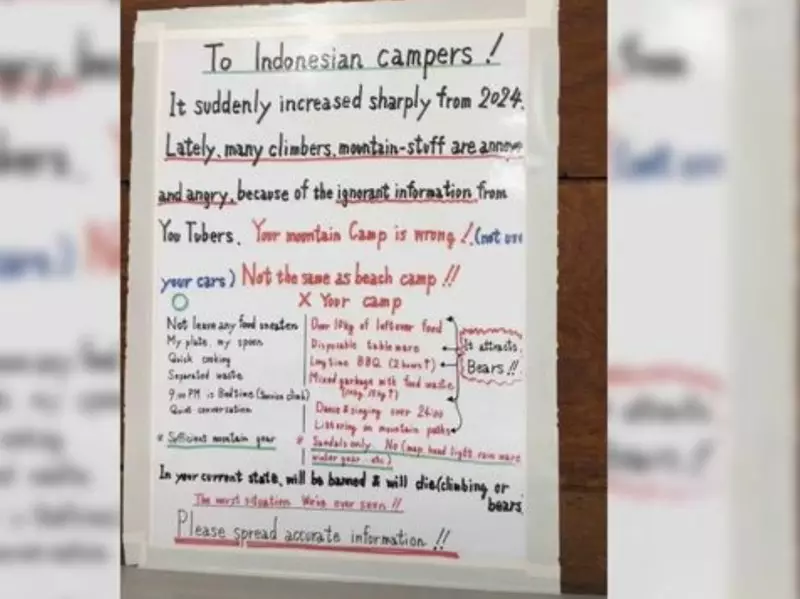 To Indonesian campers!
It suddenly increased sharply from 2024.
Lately, many climbers, mountain-stuff are annoye
and angry, because of the ignorant information from
You Tubers. Your mountain Camp is wrong! (not use
your cars) Not the same as beach camp!!
○ X Your camp
Not leave any food uneaten
My plate, my spoon
Quick cooking
Separated waste
9:00 PM is Bedtime (Senior climb)
Quiet conversation
* Sufficient mountain gear
Over 10kg of leftover food
Disposable tableware
Long time BBQ (2 hours↑)
Mixed garbage with food waste
Dance & singing over 24:00
Listening on mountain paths
* Sandals only No (map, head light, rain ware
winter gear etc)
It attracts
Bears!!
In your current state, will be banned & will die (climbing or
bears
The worst situation We've ever seen!!
Please spread accurate information!!